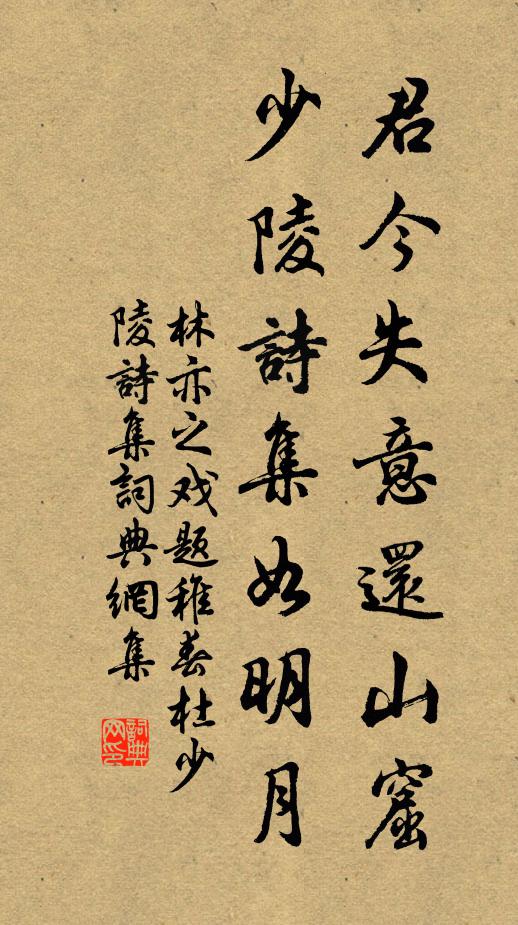 君今失意還山窟
少陵詩集如明月
林亦之戏题稚春杜少
陵詩集詞典網集
詞典
网印